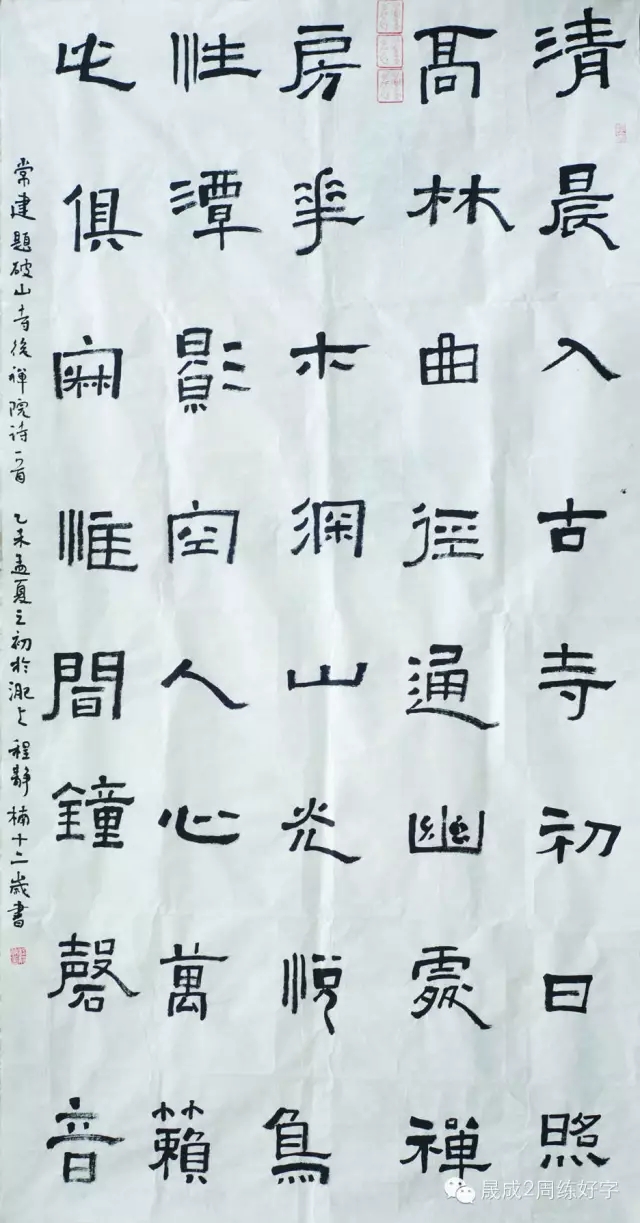 清晨入古寺初日照
高林曲徑通幽處禪
房花木深山光悅鳥
性潭影空人心萬籟
此俱寂惟聞鐘磬音
常建題破山寺後禪院詩一首 乙未孟夏之初於淝上 程靜楠十二歲書
晟成2周练好字